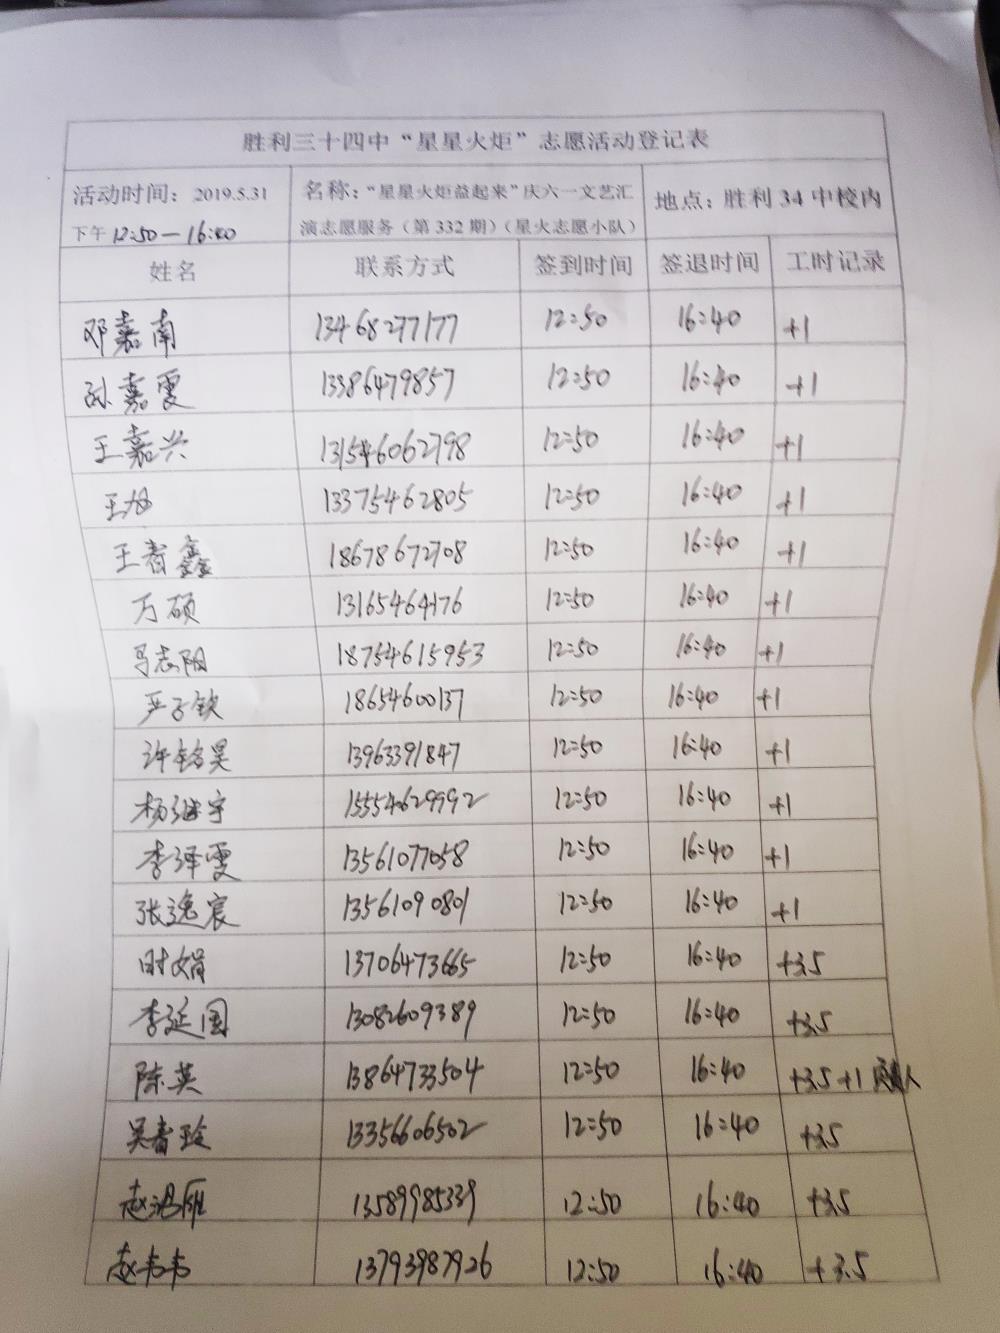 胜利三十四中“星星火炬”志愿活动登记表
活动时间：2019.5.31 名称：“星星火炬益起来”庆六一文艺汇 地点：胜利34中校内
下午12:50—16:40 演志愿服务（第332期）（星火志愿小队）
姓名 联系方式 签到时间 签退时间 工时记录
邓嘉南 13468277177 12:50 16:40 +1
孙嘉雯 13386479857 12:50 16:40 +1
王嘉兴 131546062798 12:50 16:40 +1
王旭 13375462805 12:50 16:40 +1
王春鑫 18678672708 12:50 16:40 +1
万硕 13165464176 12:50 16:40 +1
马志阳 18754615953 12:50 16:40 +1
严子钦 18654600137 12:50 16:40 +1
许铭昊 13963391847 12:50 16:40 +1
杨继宇 15554629992 12:50 16:40 +1
李泽雯 13561077058 12:50 16:40 +1
张逸宸 13561090801 12:50 16:40 +1
时文娟 13706473665 12:50 16:40 +3.5
李延国 13082609389 12:50 16:40 +3.5
陈英 13864733504 12:50 16:40 +3.5+1 负责人
吴春玲 13356606502 12:50 16:40 +3.5
赵鸿雁 13589985339 12:50 16:40 +3.5
赵韦韦 13793987926 12:50 16:40 +3.5